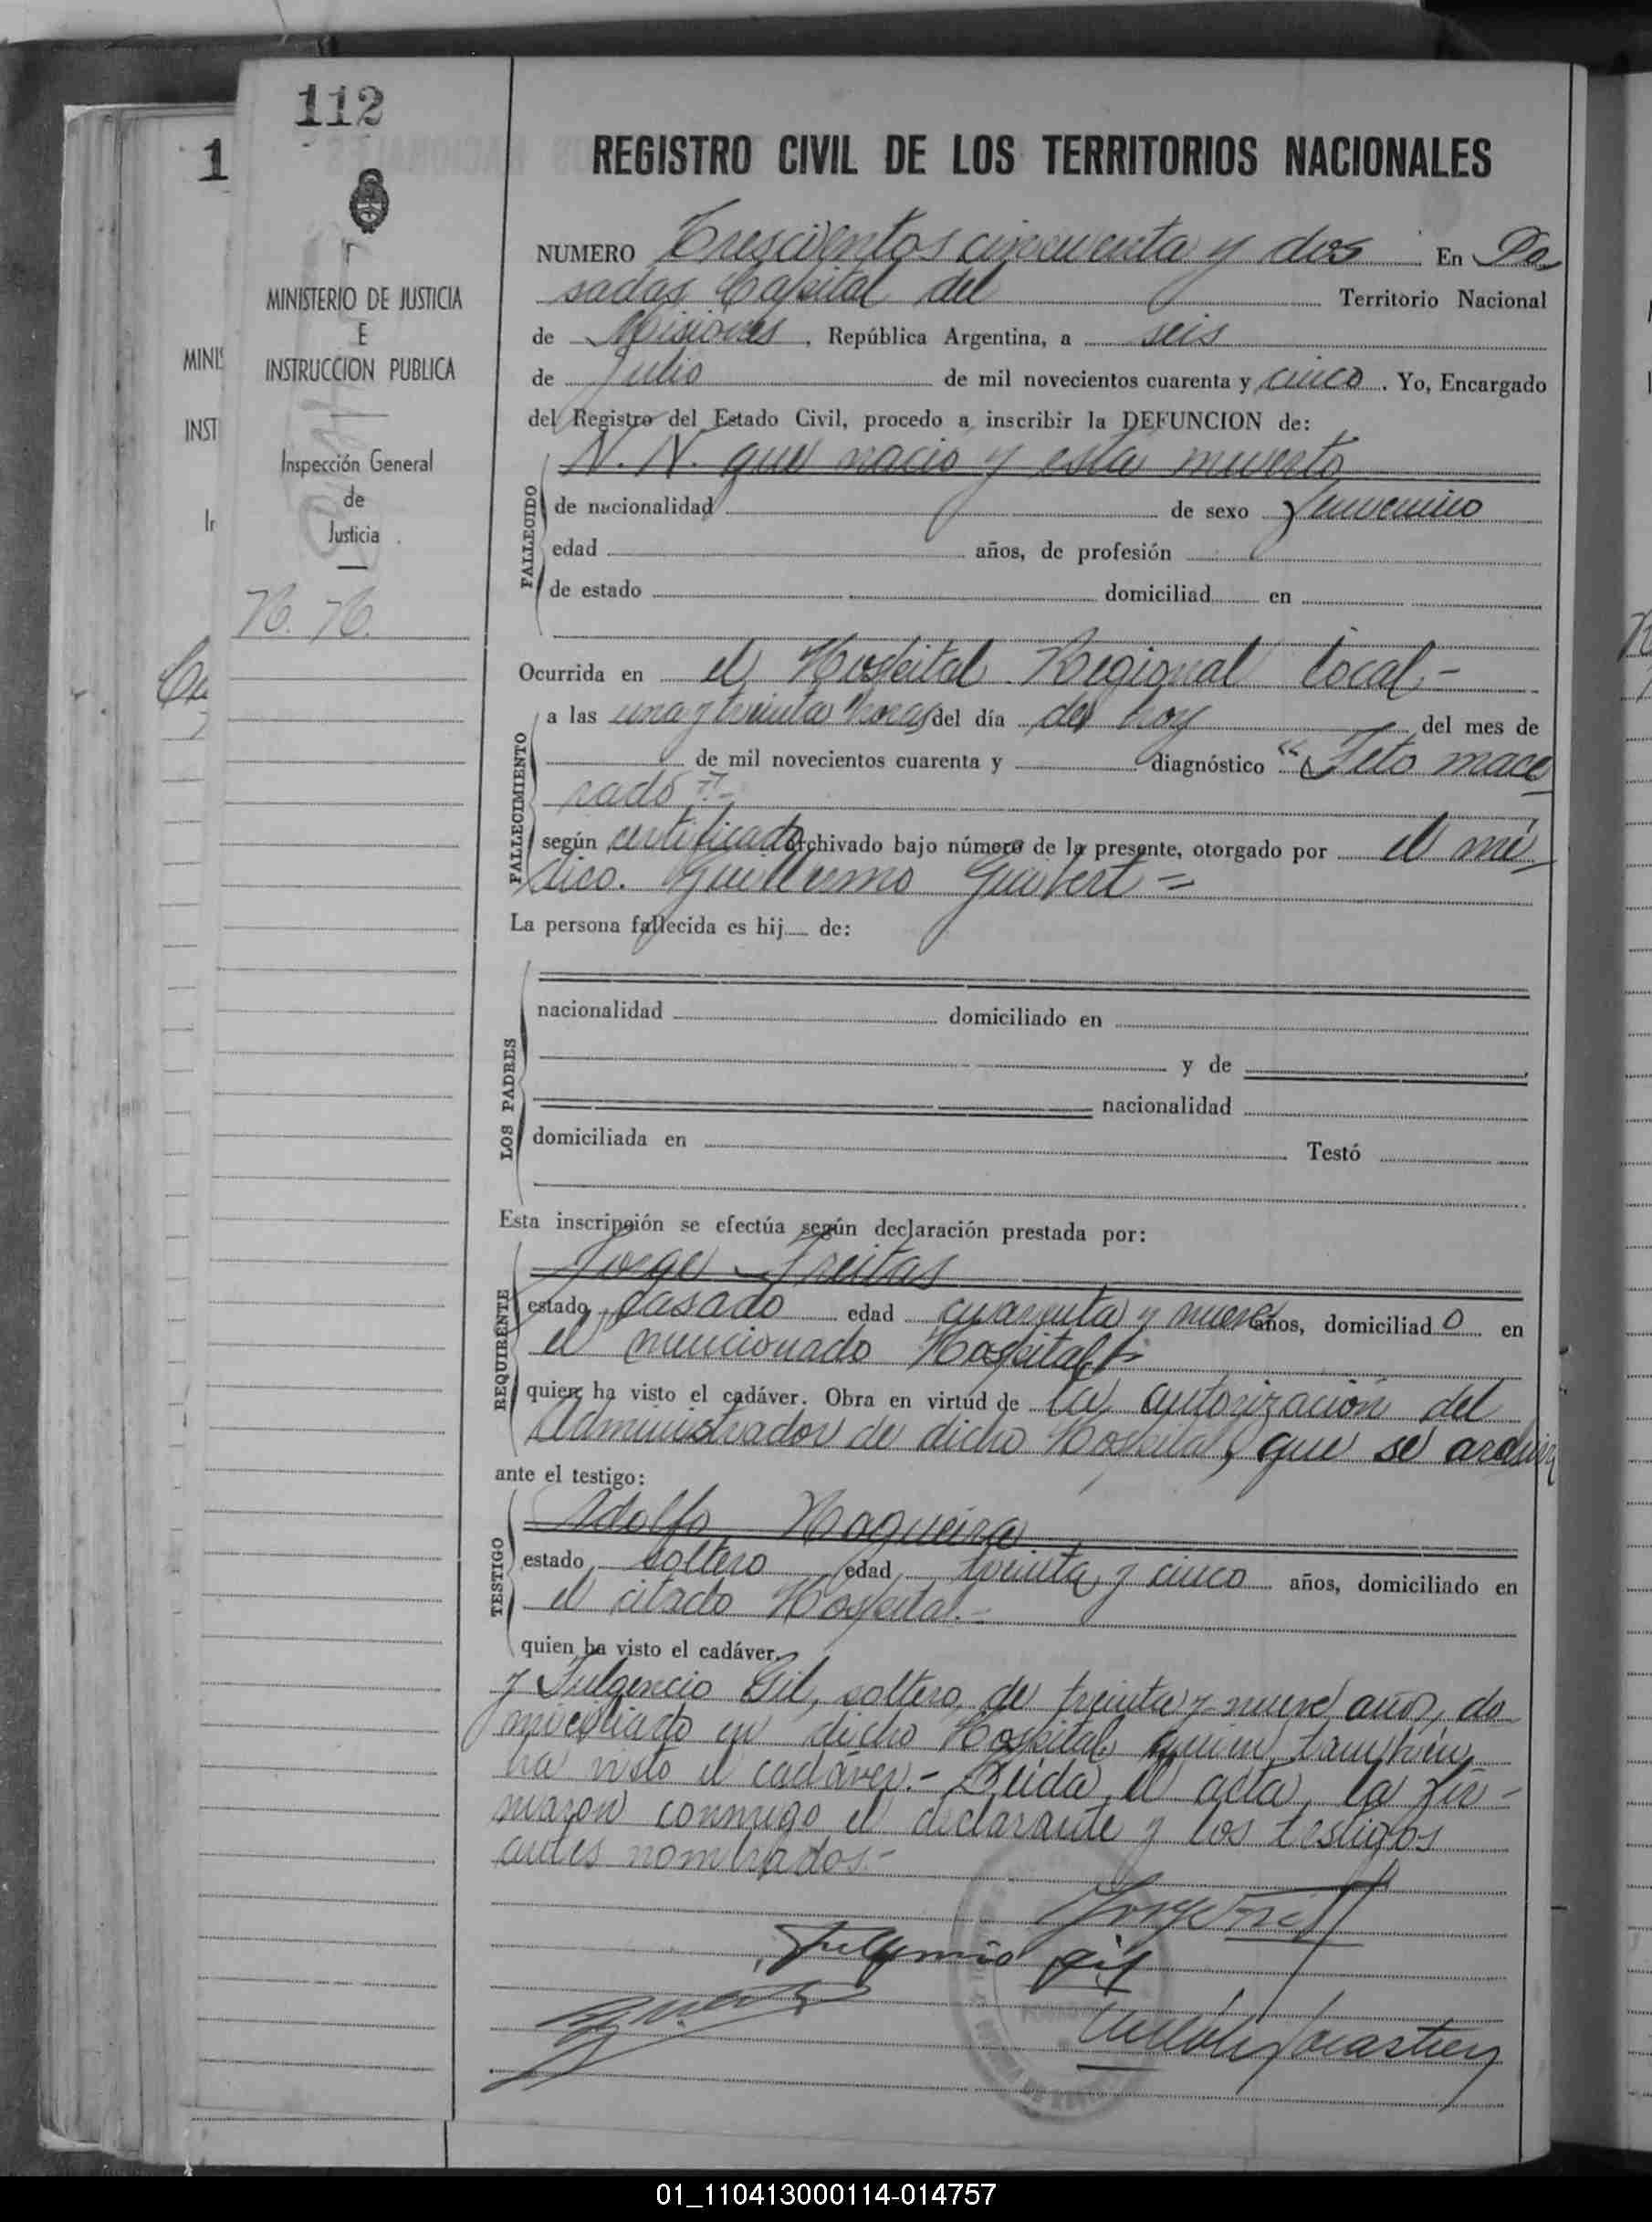 112
1
REGISTRO CIVIL DE LOS TERRITORIOS NACIONALES
MINISTERIO DE JUSTICIA
E
INSTRUCCION PUBLICA
Inspección General
de
Justicia
N. N.
MINIS
INST
In
NUMERO Trescientos cincuenta y dos En Po
sadas Capital del Territorio Nacional
de Misiones, República Argentina, a seis
de Julio de mil novecientos cuarenta y cinco. Yo, Encargado
del Registro del Estado Civil, procedo a inscribir la DEFUNCION de:
N. N. que nació y está muerto
FALLECIDO
de nacionalidad de sexo femenino
edad años, de profesión
de estado domiciliad en
Ocurrida en el Hospital Regional local.-
FALLECIMIENTO
a las una y treinta horas del día de hoy del mes de
de mil novecientos cuarenta y diagnóstico "Feto mace
rado".-
según certificado archivado bajo número de la presente, otorgado por el mé
dico. Guillermo =
La persona fallecida es hij de:
LOS PADRES
nacionalidad domiciliado en
y de
nacionalidad
domiciliada en Testó
Esta inscripción se efectúa según declaración prestada por:
REQUIRENTE
Jorge Freitas
estado casado edad cuarenta y nueve años, domiciliado en
el mencionado Hospital.-
quien ha visto el cadáver. Obra en virtud de la autorización del
Administrador de dicho Hospital, que se archiva
ante el testigo:
TESTIGO
Adolfo Nogueira
estado soltero edad treinta y cinco años, domiciliado en
el citado Hospital.-
quien ha visto el cadáver.
y Fulgencio Gil, soltero, de treinta y nueve años, do
miciliado en dicho Hospital, quien también
ha visto el cadáver.- Leida el acta, la fir-
maron conmigo el declarante y los testigos
antes nombrados.-
Fulgencio Gil
01_110413000114-014757